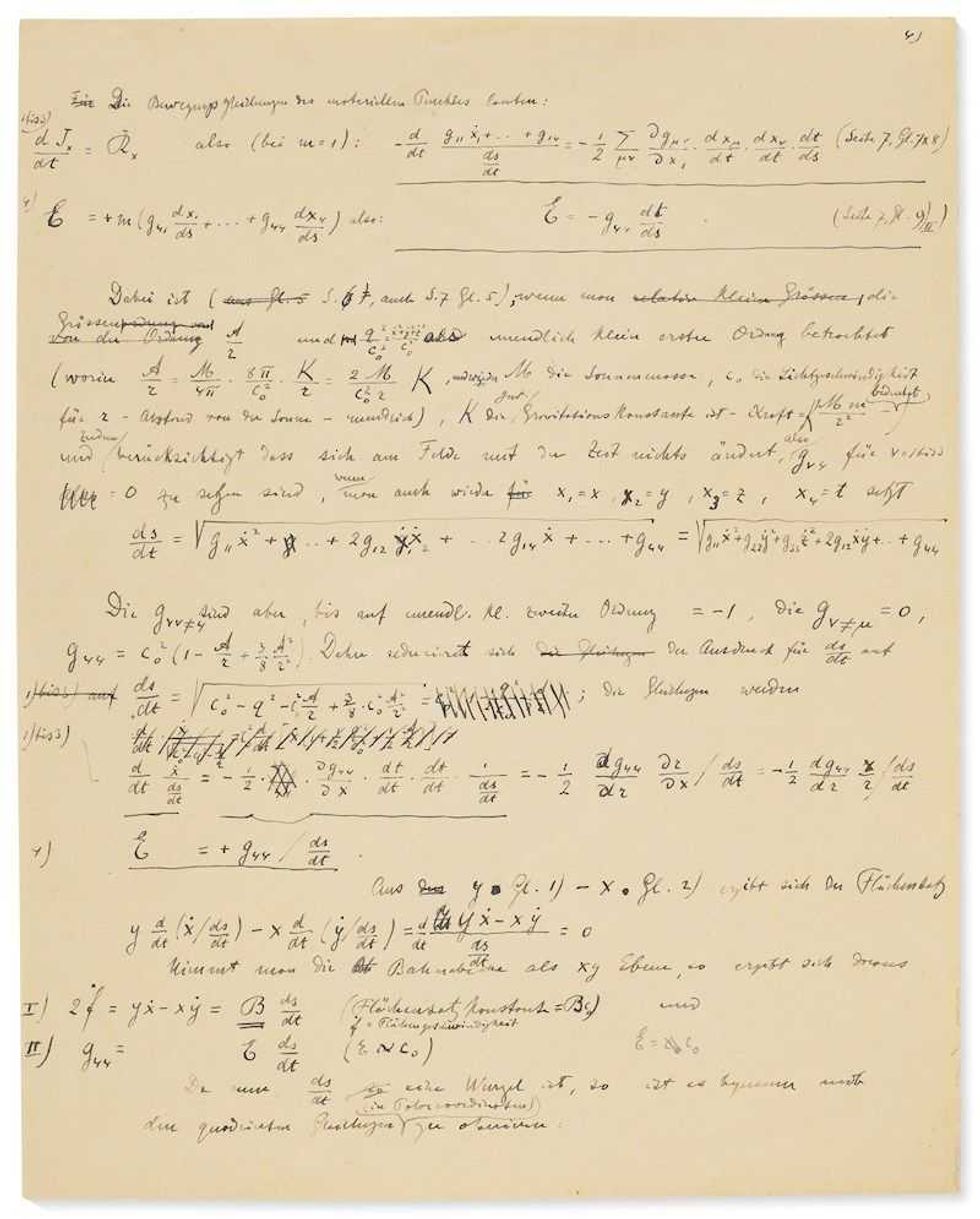 4)
Die Bewegungsgleichungen des materiellen Punktes lauten:
1)bis3) dJₓ/dt = 𝔎ₓ also (bei m=1): -d/dt (g₁₁ẋ₁+...+g₁₄)/(ds/dt) = -1/2 Σ_μν ∂g_μν/∂x₁ · dx_μ/dt · dx_ν/dt · dt/ds (Seite 7, Gl. 7 & 8)
4) E = +m(g₄₁ dx₁/ds + ... + g₄₄ dx₄/ds) also: E = -g₄. dt/ds (Seite 7, Gl. 9)
Dabei ist (aus Gl. 5 S. 7, auch S. 7 Gl. 5), wenn man relativ kleine Grössen, die
Grössen von der Ordnung A/2 und q²/c₀² unendlich klein erster Ordnung betrachtet
(worin A/2 = M/4π · 8π/c₀² · K/2 = 2M/c₀²2 K, M die Sonnenmasse, c₀ die Lichtgeschwindigkeit
für r - Abstand von der Sonne - unendlich), K die Gravitationskonstante ist - Kraft = K M m/r² bedeutet
und berücksichtigt dass sich am Felde mit der Zeit nichts ändert, also g_ν4 für ν=1 bis 3
= 0 zu setzen sind, wenn man auch wieder für x₁=x, x₂=y, x₃=z, x₄=t setzt
ds/dt = √(g₁₁ẋ²+...+2g₁₂ẋ₁ẋ₂+...2g₁₄ẋ+...+g₄₄) = √(g₁₁ẋ²+g₂₂ẏ²+g₃₃ż²+2g₁₂ẋẏ+..+g₄₄)
Die g_νν≠4 sind aber, bis auf unendl. kl. zweiter Ordnung = -1, die g_ν≠μ = 0,
g₄₄ = c₀²(1 - A/r + 3/8·A²/r²). Daher reduciert sich die Gleichungen der Ausdruck für ds/dt auf
1)bis3) auf ds/dt = √(c₀² - q² - c₀² A/r + 3/8·c₀² A²/r²) = ; die Gleichungen werden
1)bis3)
d/dt ẋ/(ds/dt) = -1/2 · ∂g₄₄/∂x · dt/dt · dt/dt · 1/(ds/dt) = -1/2 dg₄₄/dr ∂r/∂x / ds/dt = -1/2 dg₄₄/dr x/r / ds/dt
4) E = +g₄₄ / ds/dt
Aus der y • Gl. 1) - x • Gl. 2) ergibt sich der Flächensatz
y d/dt (ẋ/ds/dt) - x d/dt (ẏ/ds/dt) = d/dt (yẋ-xẏ)/(ds/dt) = 0
Nimmt man die Bahnebene als xy Ebene, so ergibt sich daraus
I) 2ḟ = yẋ-xẏ = B ds/dt (Flächensatz Konstante = Bc₀) und
f = Flächengeschwindigkeit
II) g₄₄ = E ds/dt (E ∾ c₀) E = c₀
Da nun ds/dt eine Wurzel ist, so ist es bequemer mit
(in Polarcoordinaten)
den quadrierten Gleichungen zu operieren: